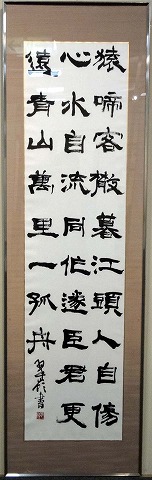 猿啼客散暮江頭人自傷
心水自流同作逐臣君更
遠青山萬里一孤舟
書